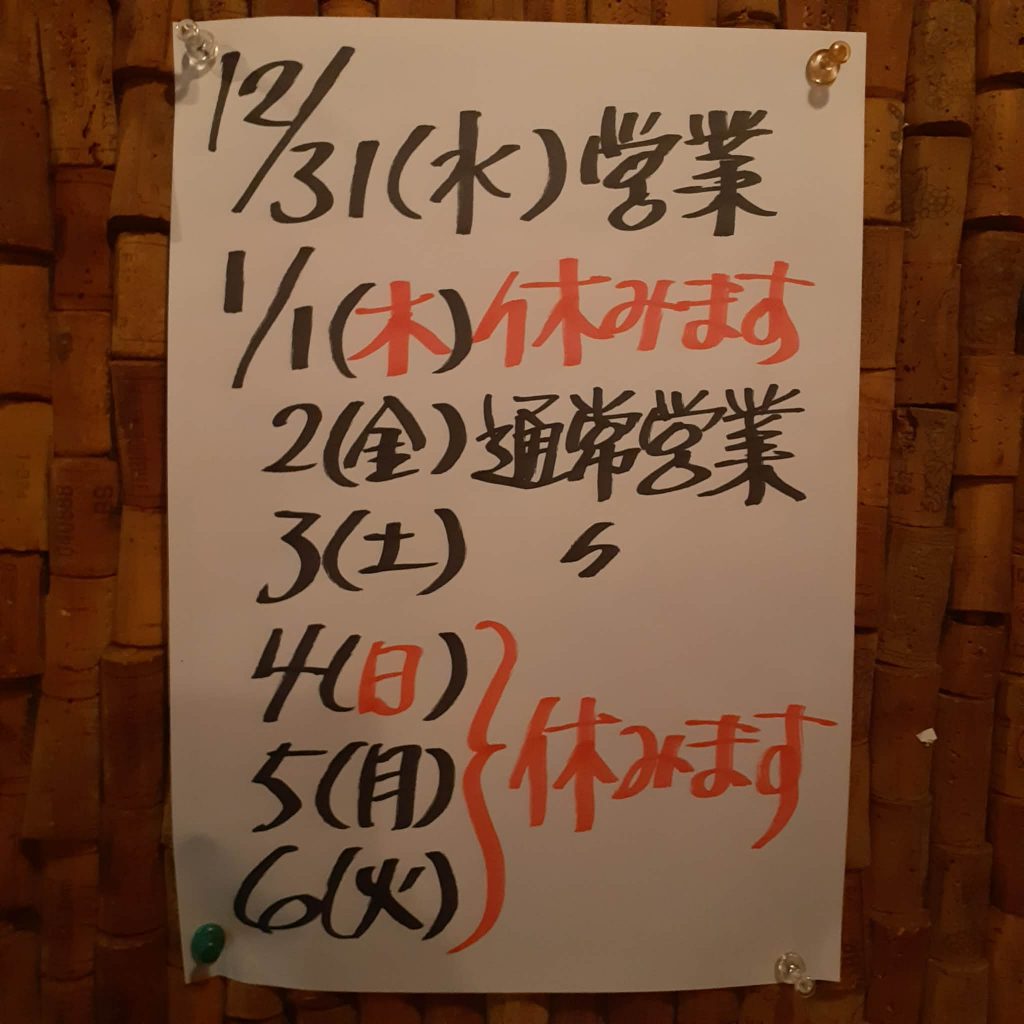 12/31(水)営業
1/1(木)休みます
2(金)通常営業
3(土) 〃
4(日)
5(月)
6(火)
休みます